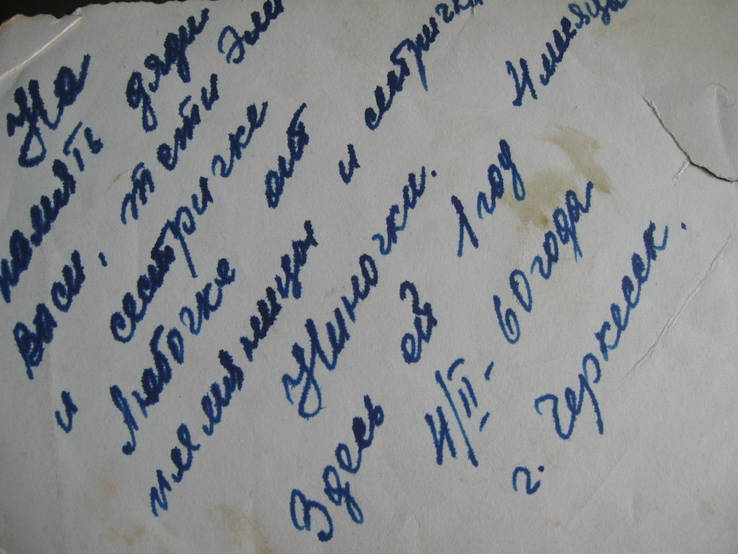 На
память дяди
Васи, тёти Эли
и сестричке
Любочке от
племянницы и сестрички
Ниночки.
Здесь ей 1 год 4 месяца
4/II-60 года
г. Черкесск.